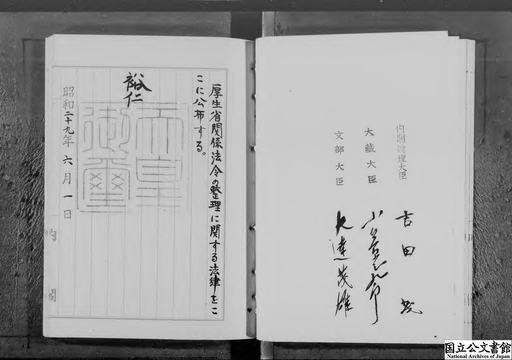 内閣総理大臣
吉田茂
大藏大臣
小笠原三九郎
文部大臣
大達茂雄
厚生省関係法令の整理に関する法律をこ
こに公布する。
裕仁
天皇
御璽
昭和二十九年六月一日
内閣
国立公文書館
National Archives of Japan